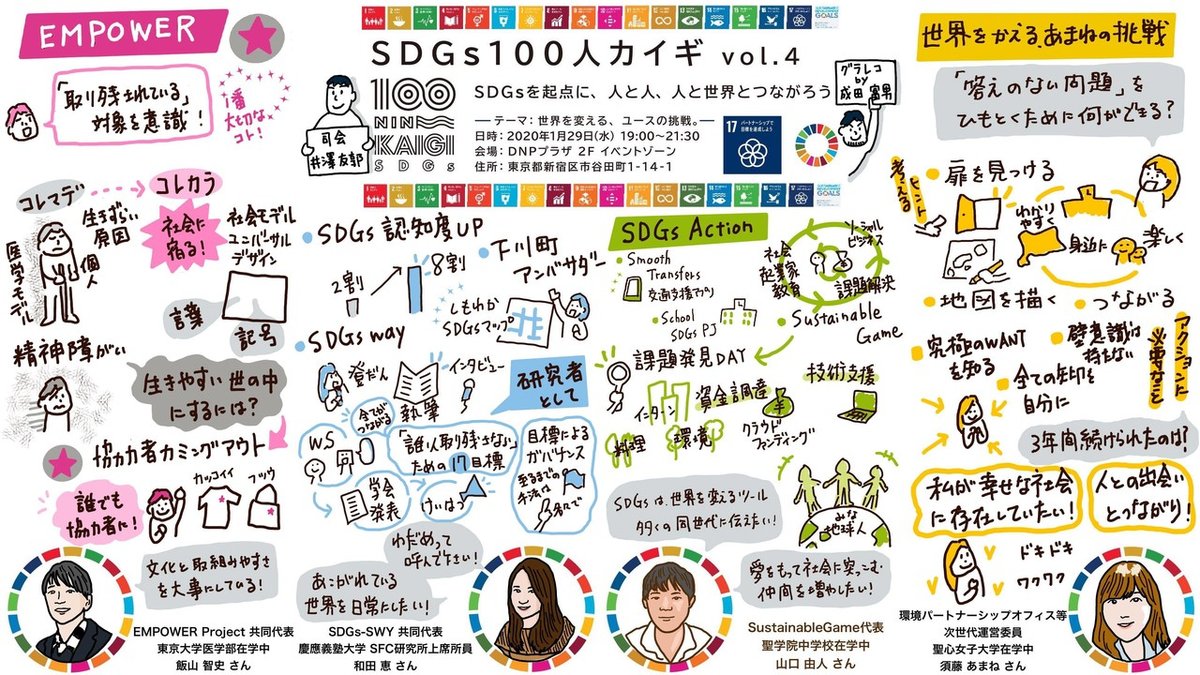 SDGs100人カイギ vol.4
100
NIN
KAIGI
SDGs
SDGsを起点に、人と人、人と世界とつながろう
テーマ: 世界を変える、ユースの挑戦。
日時: 2020年1月29日(水) 19:00~21:30
会場: DNPプラザ 2F イベントゾーン
住所: 東京都新宿区市谷田町1-14-1
司会
井澤友郭
グラレコ
by
成田 富男
17 パートナーシップで
目標を達成しよう
EMPOWER
「取り残されている」
対象を意識!
1番
大切な
コト!
コレマデ
コレカラ
生きづらい
原因
個人
医学モデル
社会に
宿る!
社会モデル
ユニバーサル
デザイン
言葉
記号
精神障がい
生きやすい世の中
にするには?
協力者カミングアウト
誰でも
協力者に!
カッコイイ
フツウ
文化と取組みやすさ
を大事にしている!
EMPOWER Project 共同代表
東京大学医学部在学中
飯山 智史 さん
SDGs 認知度UP
2割
8割
下川町
アンバサダー
しもかわ
SDGsマップ
SDGs way
登だん
執筆
インタビュー
研究者
として
WS
全てが
つながる
「誰1人取り残さない」
ための17目標
学会
発表
けいはつ
目標による
ガバナンス
至るまでの
手法は
各々で
わだめって
呼んで下さい!
あこがれている
世界を日常にしたい!
SDGs-SWY 共同代表
慶應義塾大学 SFC研究所上席所員
和田 恵 さん
SDGs Action
Smooth
Transfers
交通支援アプリ
School
SDGs PJ
社会
起業家
教育
ソーシャル
ビジネス
課題解決
Sustainable
Game
課題発見DAY
インターン
資金調達
技術支援
料理
環境
クラウド
ファンディング
SDGsは、世界を変えるツール
多くの同世代に伝えたい!
みな
地球人
愛をもって社会に突っこむ
仲間を増やしたい!
SustainableGame代表
聖学院中学校在学中
山口 由人 さん
世界をかえる、あまねの挑戦
「答えのない問題」を
ひもとくために何ができる?
考える
ヒント
扉を見つける
わかり
やすく
身近に
楽しく
地図を描く
つながる
究極のWANT
を知る
壁意識は
持たない
全ての矢印を
自分に
アクションに
必要なこと
3年間続けられたのは?
私が幸せな社会
に存在していたい!
人との出会い
とつながり!
ドキドキ
ワクワク
環境パートナーシップオフィス等
次世代運営委員
聖心女子大学在学中
須藤 あまね さん